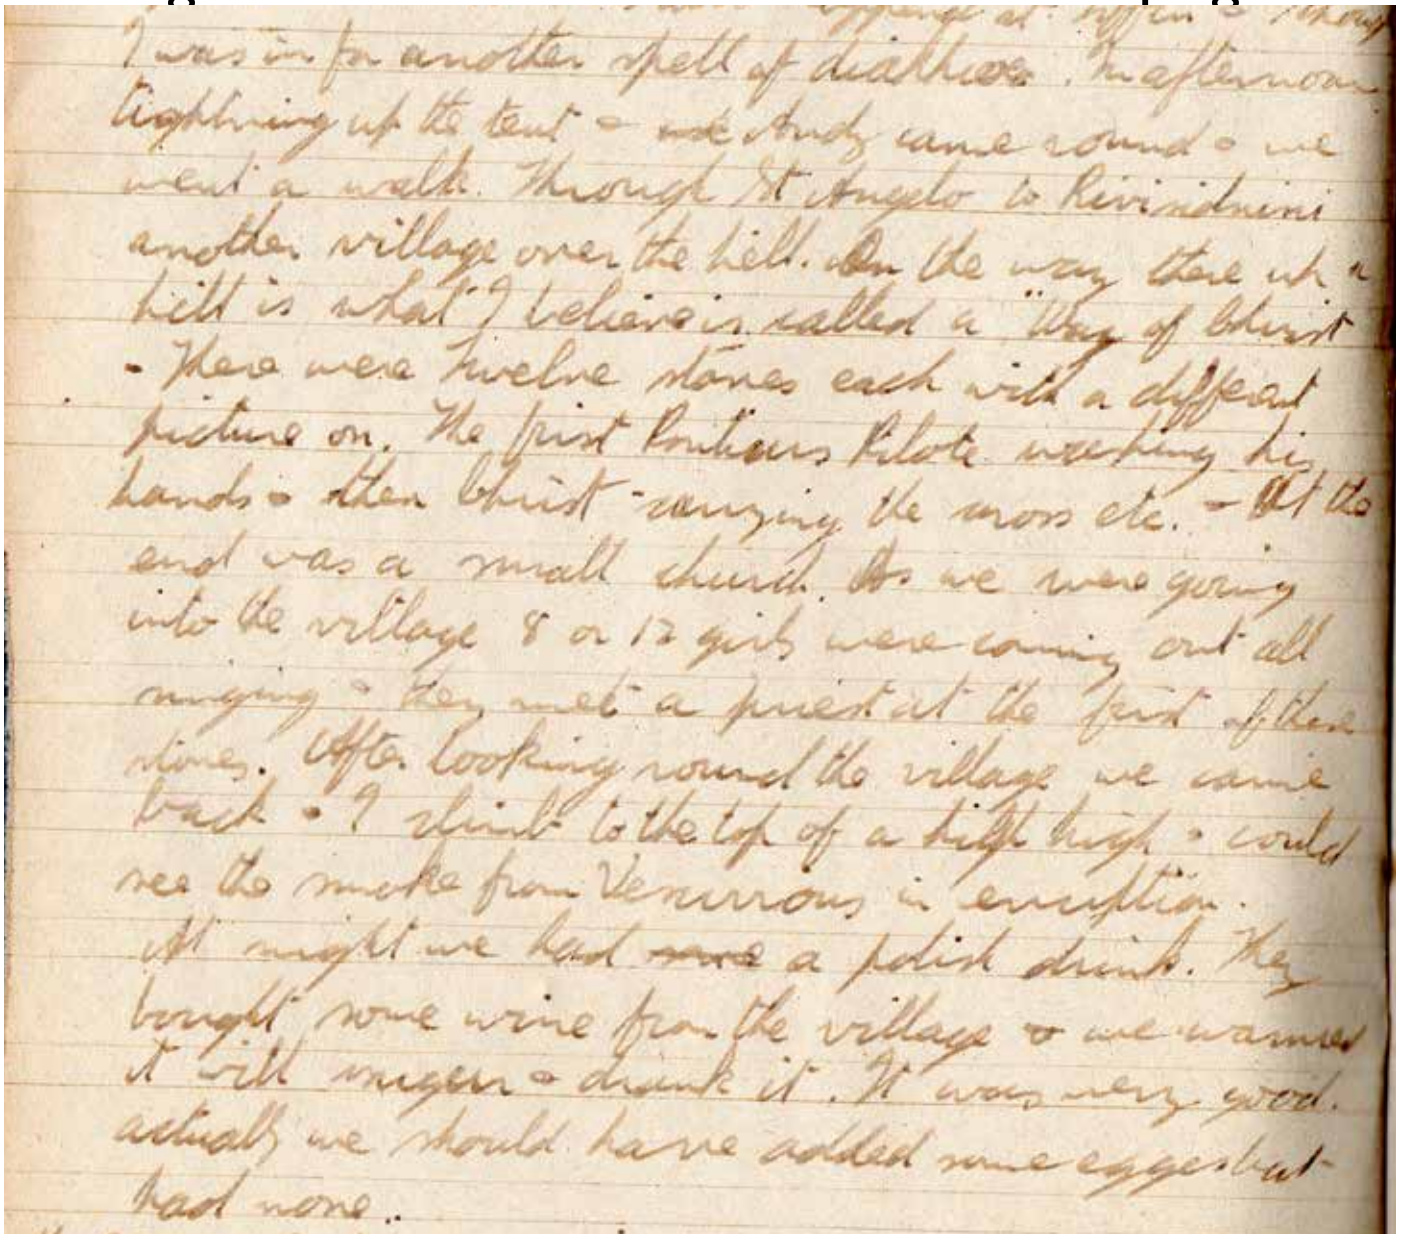 at tiffin -
I was in for another spell of diarhhoea. In afternoon
tightning up the tent - Andy came round - we
went a walk. Through St Angelo to
another village over the hill. On the way there up a
hill is what I believe is called a "Way of Christ
- There were Twelve stones each with a different
picture on. The first Pontious Pilate washing his
hands - then Christ carrying the cross etc. - At the
end was a small church. As we were going
into the village 8 or 12 girls were coming out all
singing - they met a priest at the first of these
stones. After looking round the village we came
back - I climb to the top of a high - could
see the smoke from Vesuvious in eruption.
At night we had some a polish drink. They
bought some wine from the village & we warmed
it with - drank it. It was very good.
actually we should have added some eggs but
had none.